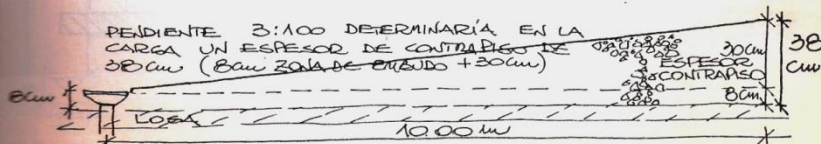 PENDIENTE 3:100 DETERMINARÍA EN LA
CARGA UN ESPESOR DE CONTRAPISO DE
38cm (8cm ZONA DE EMBUDO + 30cm)
30cm
38
cm
ESPESOR
CONTRAPISO
8cm
8cm
LOSA
10.00 m